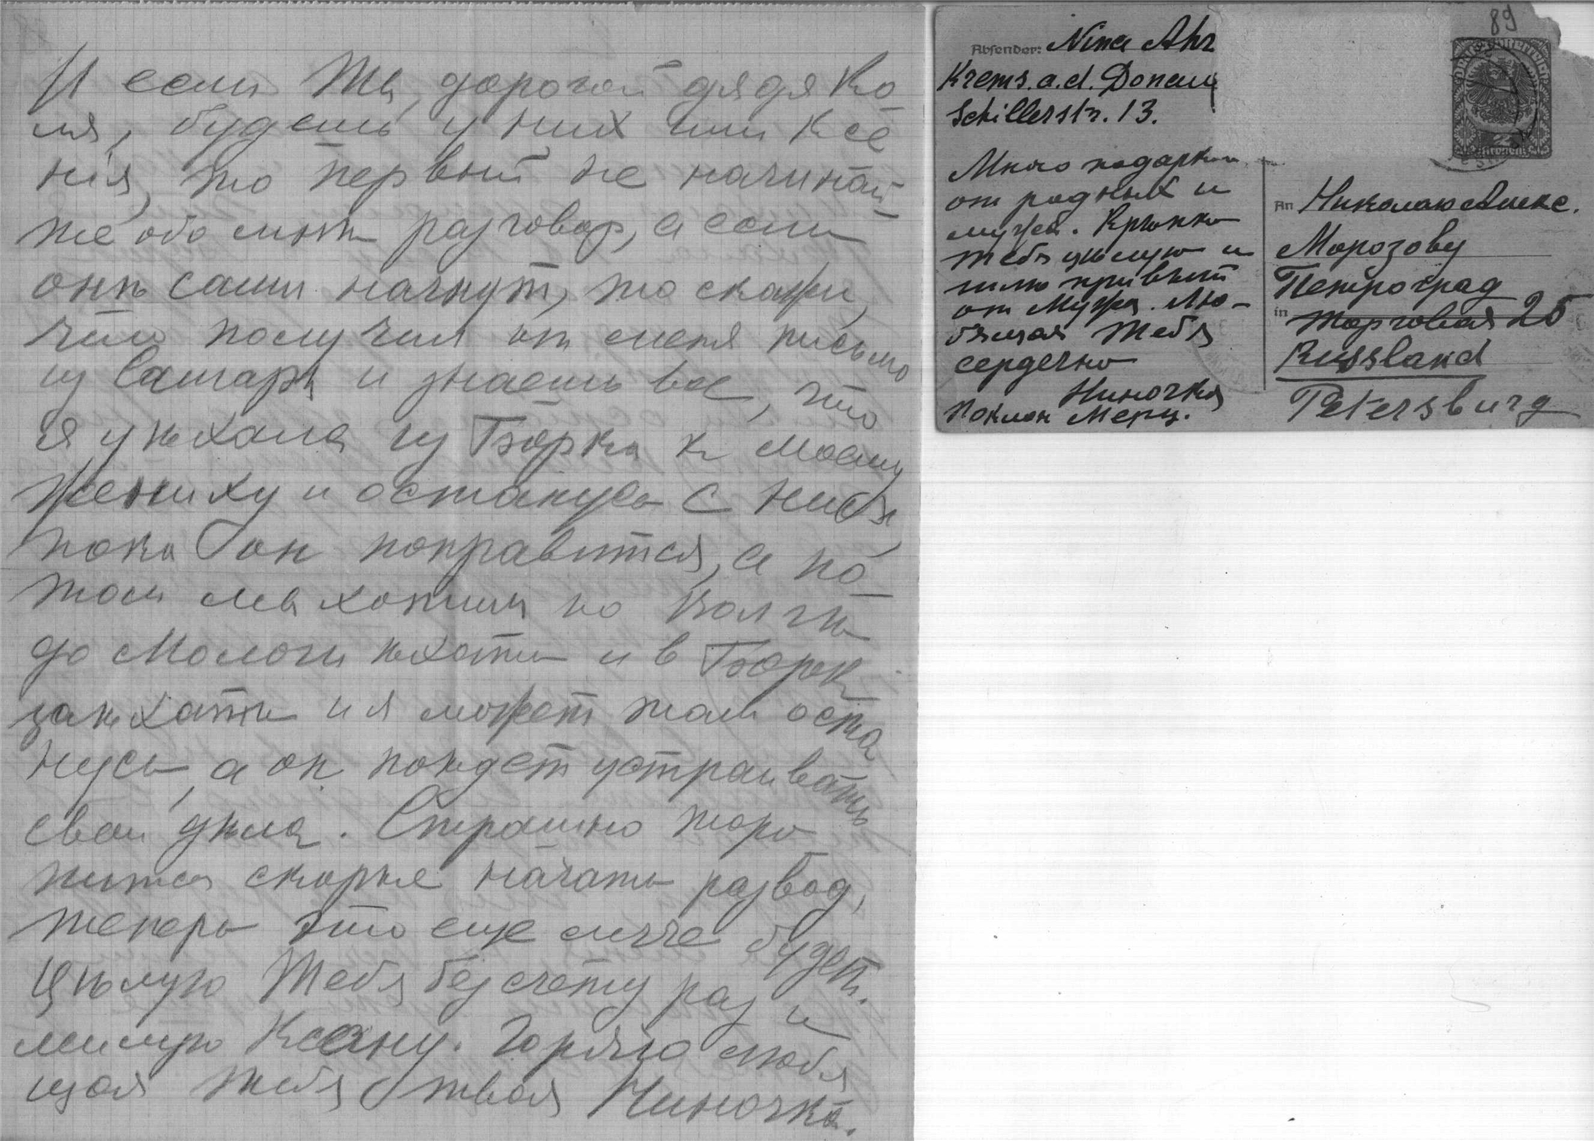 И если Ты, дорогой дядя Ко-
ля, будешь у них или Ксе
нія, то первый не начинай-
те обо мнѣ разговор, а если
онѣ сами начнут, то скажи,
что получил от меня письмо
из Самары и знаешь все, что
я уѣхала из Борка к моему
жениху и останусь с нимъ,
пока он поправится, а по-
том мы хотим по Волгѣ
до Мологи ѣхать и в Борок
заѣхать и я может там оста
нусь, а он поѣдет устраивать
свои дѣла. Страшно торо-
пится скорѣе начать развод,
теперь это еще легче будет.
Цѣлую Тебя безсчету раз и
милую Ксану. Горячо любя
щая Тебя твоя Ниночка.
89
Absender: Nina Ahr
Krems. a. d. Donau
Schillerstr. 13.
Много подарков
от родных и
мужа. Крѣпко
тебя цѣлую и
шлю привѣт
от Мужа. Лю-
бящая Тебя
сердечно
Ниночка
Поклон Мерц.
An Николаю Алекс.
Морозову
Петроград
in Торговая 25
Russland
Petersburg